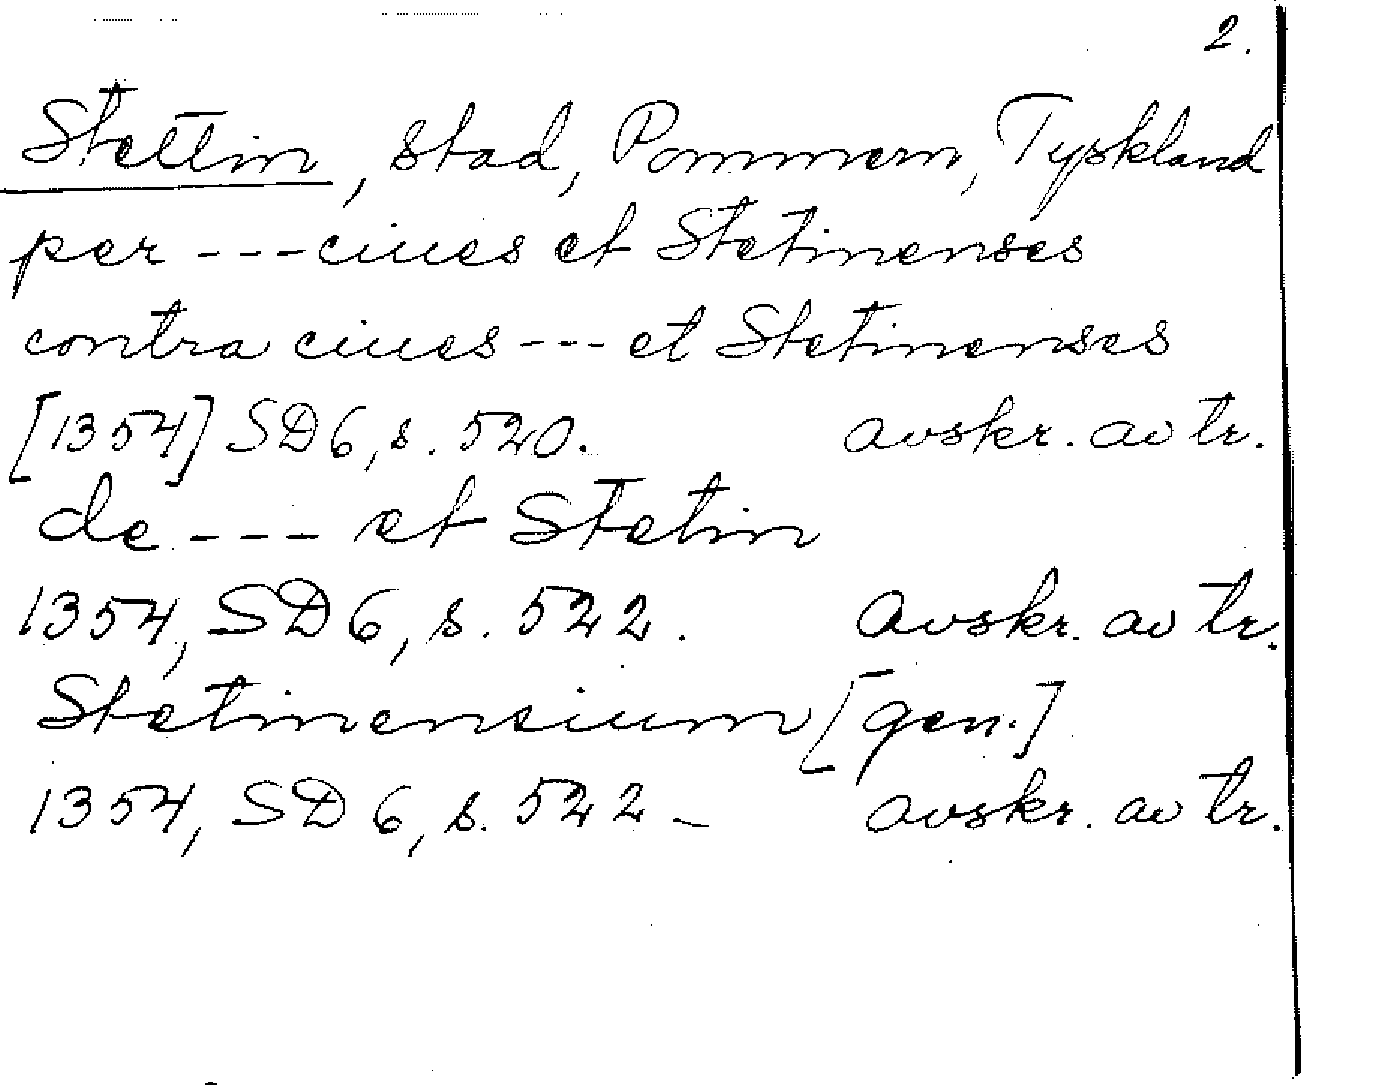 2.
Stettin, stad, Pommern, Tyskland
per --- ciues et Stetinenses
contra ciues --- et Stetinenses
[1354] SD 6, s. 520. avskr. av tr.
de --- et Stetin
1354, SD 6, s. 522. avskr. av tr.
Stetinensium [gen.]
1354, SD 6, s. 522 - avskr. av tr.